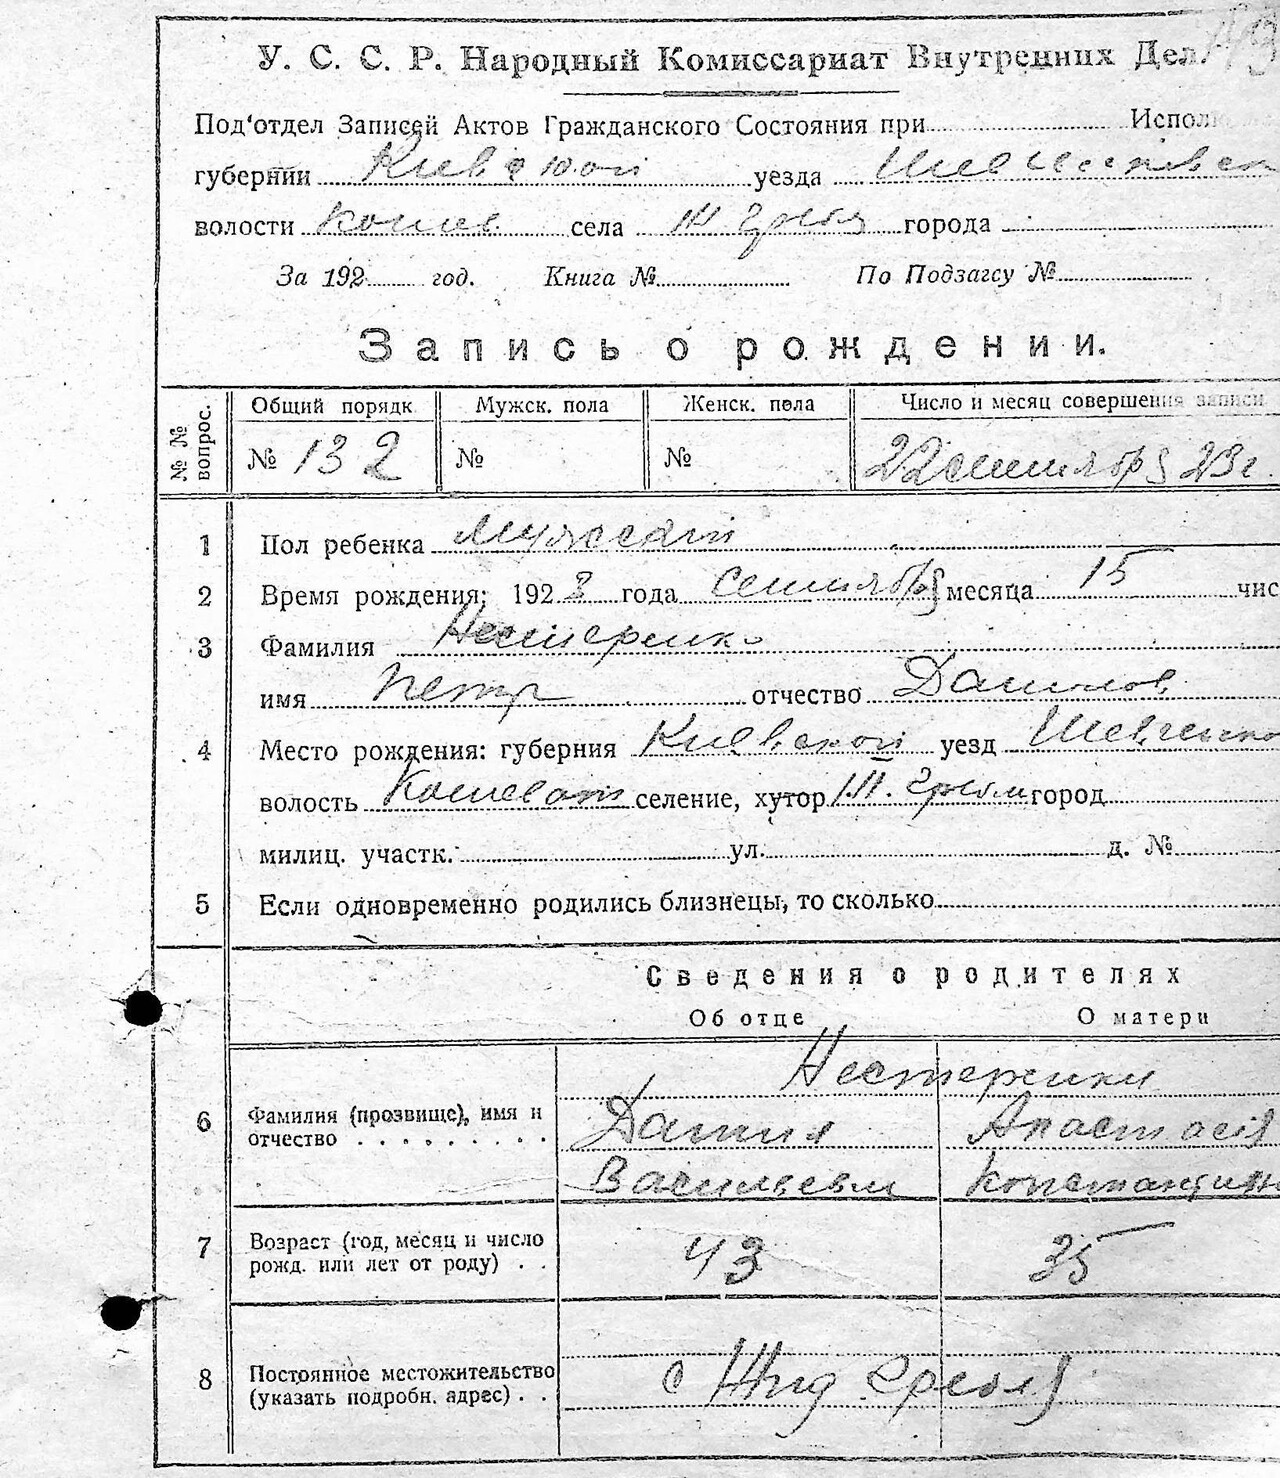 У. С. С. Р. Народный Комиссариат Внутренних Дел.
Под'отдел Записей Актов Гражданского Состояния при Испол
губернии Киевской уезда
волости Кошев. села города
За 192 год. Книга № По Подзагсу №
Запись о рождении.
№№ вопрос. Общий порядк Мужск. пола Женск. пола Число и месяц совершения записи
№ 132 № № 22 сентября 23 г.
1 Пол ребенка Мужской
2 Время рождения: 1923 года Сентября месяца 15 чис
3 Фамилия Нестеренко
имя Петр отчество Данилов
4 Место рождения: губерния Киевской уезд Шевченко
волость Кошеват селение, хутор город
милиц. участк. ул. д. №
5 Если одновременно родились близнецы, то сколько
Сведения о родителях
Об отце О матери
Нестеренки
6 Фамилия (прозвище), имя и Данил Анастасія
отчество Васильевич Константин
7 Возраст (год, месяц и число 43 35
рожд. или лет от роду)
8 Постоянное местожительство с Жид Гребля
(указать подробн. адрес)